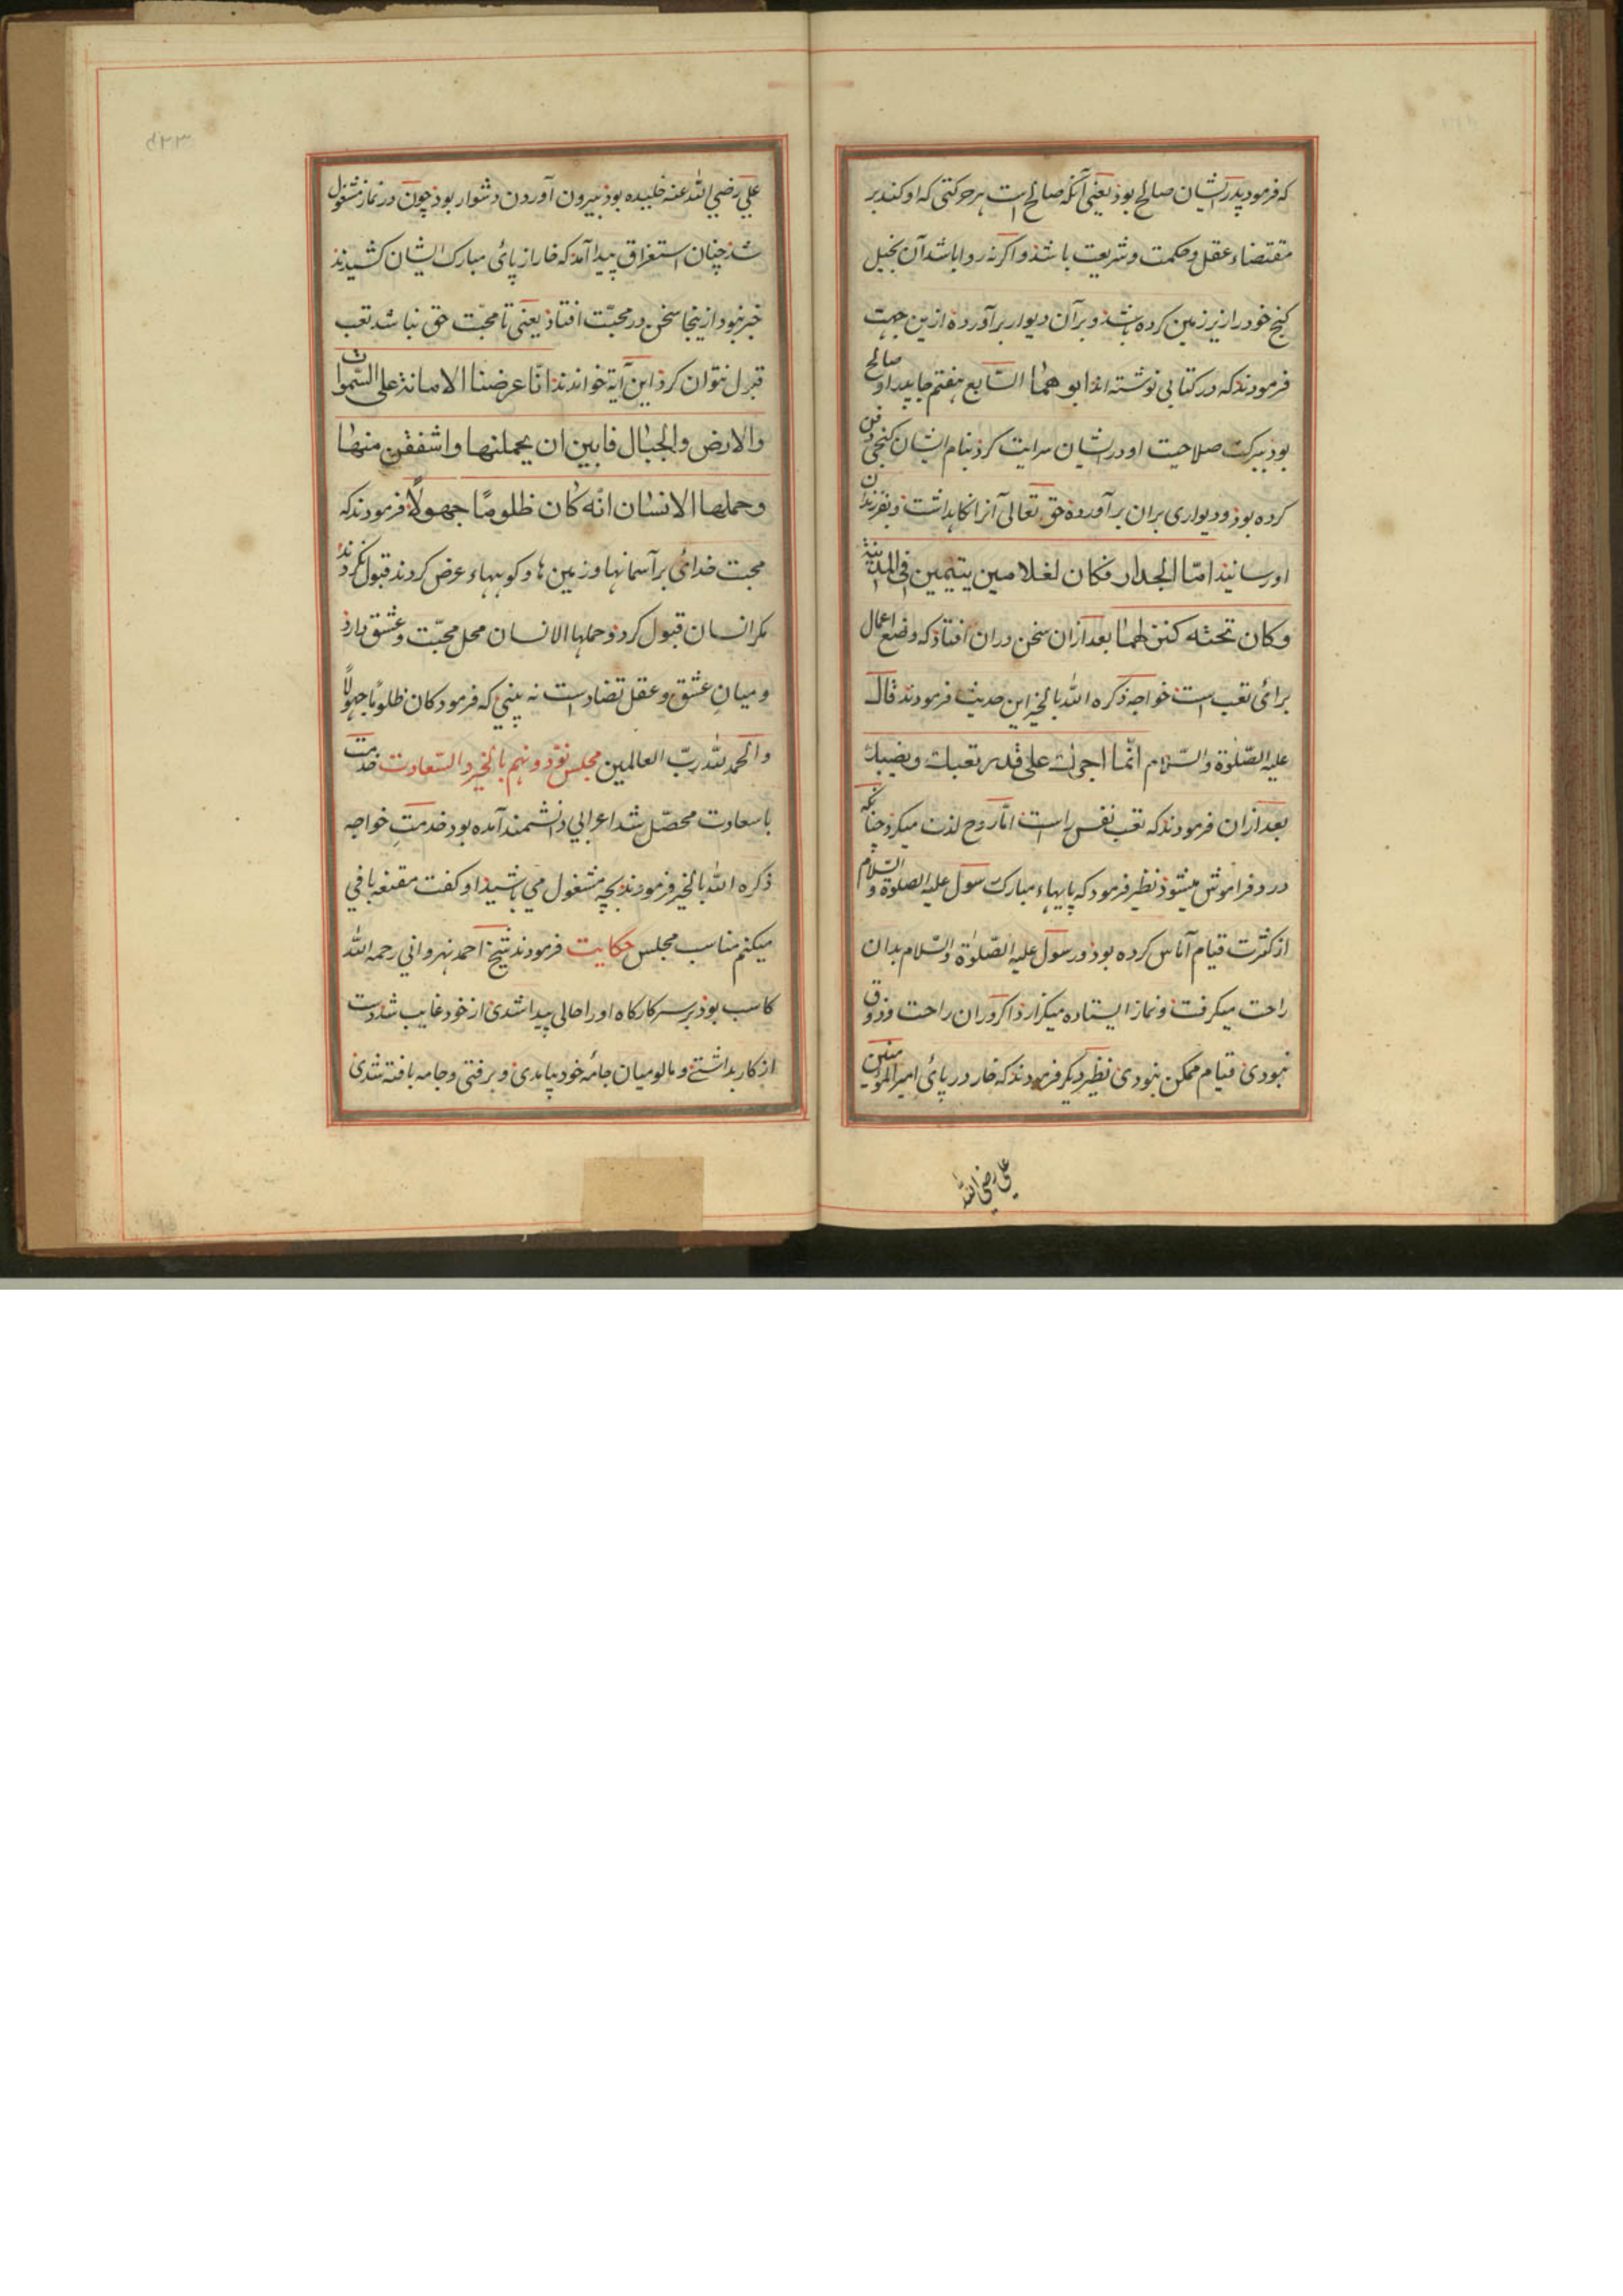 که فرمود پدر ایشان صالح بوذ یعنی آنکه صالح است هر حرکتی که او کند بر
مقتضاء عقل و حکمت و شریعت باشذ و اکر نه روا باشد آن بخیل
کنج خود را زیر زمین کرده باشذ و بر آن دیوار برآورده ازین جهت
فرمودند که در کتابی نوشته اند ابو هما السّابع هفتم جا پدر او صالح
بوذ ببرکت صلاحیت او در ایشان سرایت کرد بنام ایشان کنجی دفن
کرده بوذ و دیواری بران برآورده حق تعالی آنرا نکاه داشت و بفرزندان
او رسانیذ امّا الجدار فکان لغلامین یتیمین فی المدینة
و کان تحته کنز لهما بعد ازان سخن دران افتاذ که وضع اعمال
برای تعب است خواجه ذکره الله بالخیر این حدیث فرمودند قال
علیه الصّلوة والسّلام انّما اجرک علی قدر تعبک و نصبک
بعد ازان فرمودند که تعب نفس راست امّا روح لذت میکرد چنانکه
درد فراموش میشوذ نظیر فرمود که پایهاء مبارک رسول علیه الصلوة والسّلام
از کثرت قیام آماس کرده بوذ و رسول علیه الصّلوة والسّلام بدان
راحت میکرفت و نماز ایستاده میکزارد اکر دران راحت و ذوق
نبودی قیام ممکن نبودی نظیر دیکر فرمودند که خار در پای امیر المومنین
علی رضی الله
۲۳۳
علی رضی الله عنه خلیده بوذ بیرون آوردن دشوار بوذ چون در نماز مشغول
شذ چنان استغراق پیدا آمد که خار از پای مبارک ایشان کشیدند
خبر نبود از ینجا سخن در محبّت افتاذ یعنی تا محبّت حق نباشد تعب
قبول نتوان کرد این آیة خواندند انّا عرضنا الامانة علی السّموات
والارض والجبال فابین ان یحملنها واشفقن منها
وحملها الانسان انّه کان ظلومًا جهولًا فرمودند که
محبت خدای بر آسمانها و زمین ها و کوههاء عرض کردند قبول نکردند
مکر انسان قبول کرد وحملها الانسان محل محبّت و عشق دارد
و میان عشق و عقل تضاد است نه بینی که فرمود کان ظلومًا جهولًا
والحمد لله ربّ العالمین مجلس نود و نهم بالخیر والسّعادت خدمت
باسعادت محصّل شد اعرابی دانشمند آمده بود خدمتِ خواجه
ذکره الله بالخیر فرمودند بچه مشغول می باشید او کفت مقنعه بافی
میکنم مناسب مجلس حکایت فرمودند شیخ احمد نهروانی رحمه الله
کاسب بوذ بر سر کارکاه او را حالی پیدا شدی از خود غایب شد دست
از کار بداشتی و مالو میان جامهٔ خود بیامدی و برفتی و جامه بافته شدی